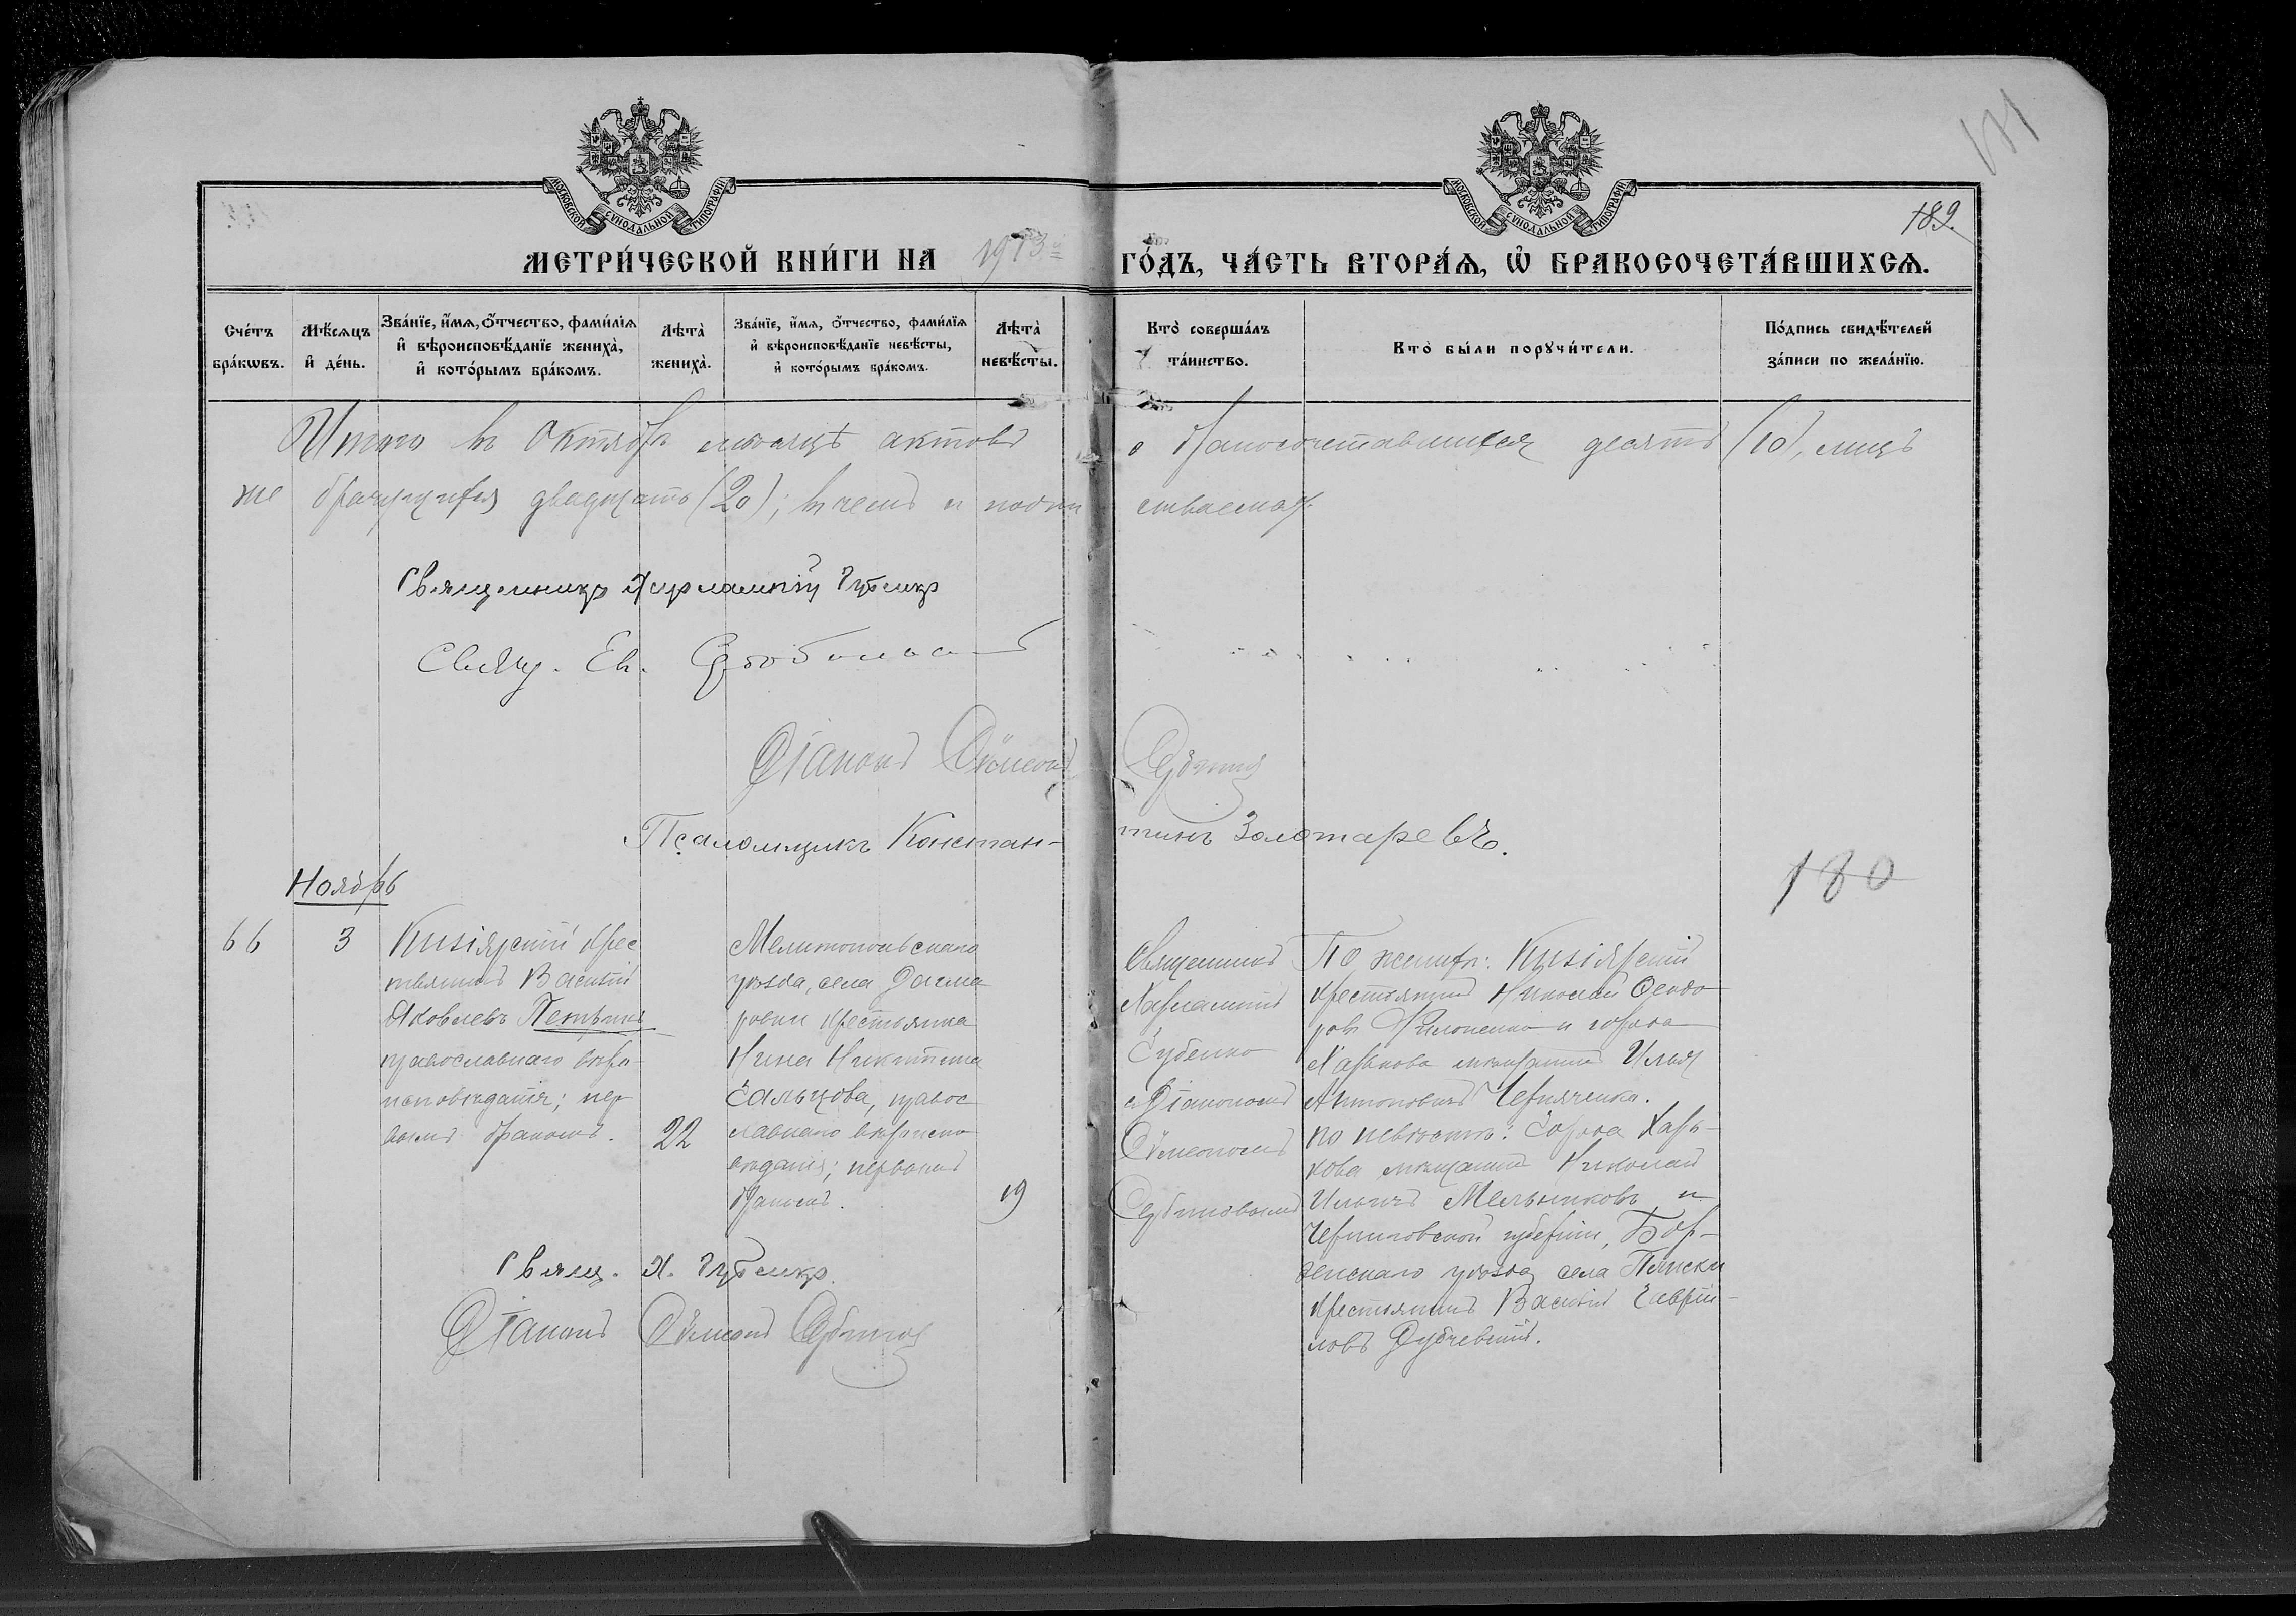 МОСКОВСКОЙ СѴНОДАЛЬНОЙ ТИПОГРАФІИ
МОСКОВСКОЙ СѴНОДАЛЬНОЙ ТИПОГРАФІИ
181
189.
МЕТРИ́ЧЕСКОЙ КНИ́ГИ НА 1913й ГО́ДЪ, ЧА́СТЬ ВТОРА́Ѧ, Ѡ҆ БРАКОСОЧЕТА́ВШИХСѦ.
Сче́тъ бра́кѡвъ.
Мѣ́сѧцъ и҆ де́нь.
Зва́нїе, и҆́мѧ, ѻ҆́тчество, фами́лїѧ и҆ вѣроисповѣ́данїе жениха̀, и҆ кото́рымъ бра́комъ.
Лѣта̀ жениха̀.
Зва́нїе, и҆́мѧ, ѻ҆́тчество, фами́лїѧ и҆ вѣроисповѣ́данїе невѣ́сты, и҆ кото́рымъ бра́комъ.
Лѣта̀ невѣ́сты.
Кто̀ соверша́лъ та́инство.
Кто̀ бы́ли порꙋчи́тели.
По́дпись свидѣ́телей за́писи по жела́нїю.
Итого въ Октябрѣ мѣсяцѣ актовъ о бракосочетавшихся десять (10), лицъ
же брачущихся двадцать (20); въ чемъ и подписываемся:
Священникъ Харлампій Губенко
Свящ. Ев.
Діаконъ Сѵмеонъ
Псаломщикъ Константинъ Золотаревъ.
Ноябрь
180
66
3
Кизіярскій крес
тьянинъ Василій
Яковлевъ Петринъ
православнаго вѣро-
исповѣданія; пер
вымъ бракомъ.
22
Мелитопольскаго
уѣзда, села Дагма
ровки крестьянка
Нина Никитина
Сальцова, правос
лавнаго вѣроиспо
вѣданія; первымъ
бракомъ.
19
Священникъ
Харлампій
Губенко
съ Діакономъ
Сѵмеономъ
По женихѣ: Кизіярскій
крестьянинъ Николай Ѳеодо
ровъ Филоненко и города
Харькова мѣщанинъ Илья
Антоновичъ Черняченко.
по невѣстѣ: города Харь-
кова мѣщанинъ Николай
Ильичъ Мельниковъ и
Черниговской губерніи, Бор-
зенскаго уѣзда, села Плиски
крестьянинъ Василій Гаврі-
ловъ Дубчевскій.
Свящ. Х. Губенко
Діаконъ Сѵмеонъ